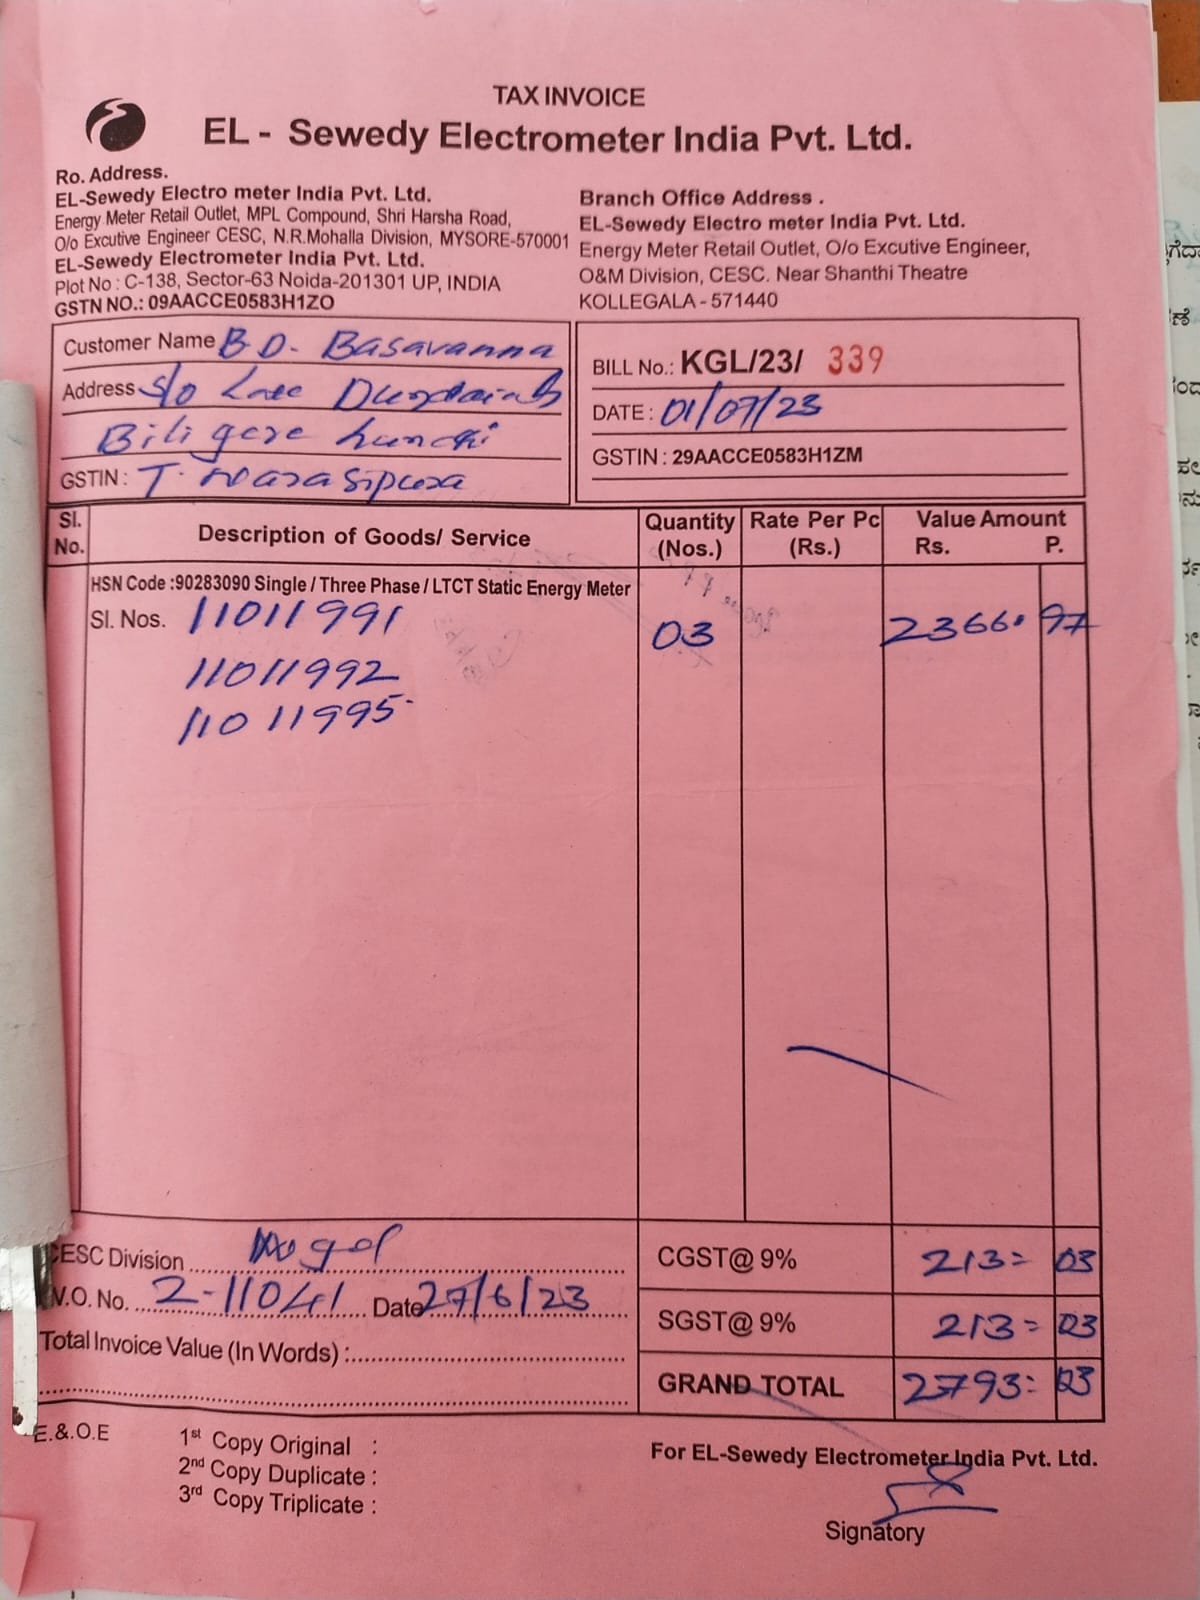 TAX INVOICE
EL - Sewedy Electrometer India Pvt. Ltd.
Ro. Address.
EL-Sewedy Electro meter India Pvt. Ltd.
Energy Meter Retail Outlet, MPL Compound, Shri Harsha Road,
O/o Excutive Engineer CESC, N.R.Mohalla Division, MYSORE-570001
EL-Sewedy Electrometer India Pvt. Ltd.
Plot No : C-138, Sector-63 Noida-201301 UP, INDIA
GSTN NO.: 09AACCE0583H1ZO
Branch Office Address .
EL-Sewedy Electro meter India Pvt. Ltd.
Energy Meter Retail Outlet, O/o Excutive Engineer,
O&M Division, CESC. Near Shanthi Theatre
KOLLEGALA - 571440
Customer Name B.D. Basavanna
Address S/o Late
Biligere hundi
GSTIN : T. Narasipura
BILL No.: KGL/23/ 339
DATE : 01/07/23
GSTIN : 29AACCE0583H1ZM
Sl. No. Description of Goods/ Service Quantity (Nos.) Rate Per Pc (Rs.) Value Amount Rs. P.
HSN Code :90283090 Single / Three Phase / LTCT Static Energy Meter
Sl. Nos. 11011991 03 2366.97
11011992
11011995
CESC Division
W.O. No. 2-11041 Date 27/6/23
Total Invoice Value (In Words) :
CGST@ 9% 213= 03
SGST@ 9% 213= 03
GRAND TOTAL 2793= 03
E.&.O.E
1st Copy Original :
2nd Copy Duplicate :
3rd Copy Triplicate :
For EL-Sewedy Electrometer India Pvt. Ltd.
Signatory